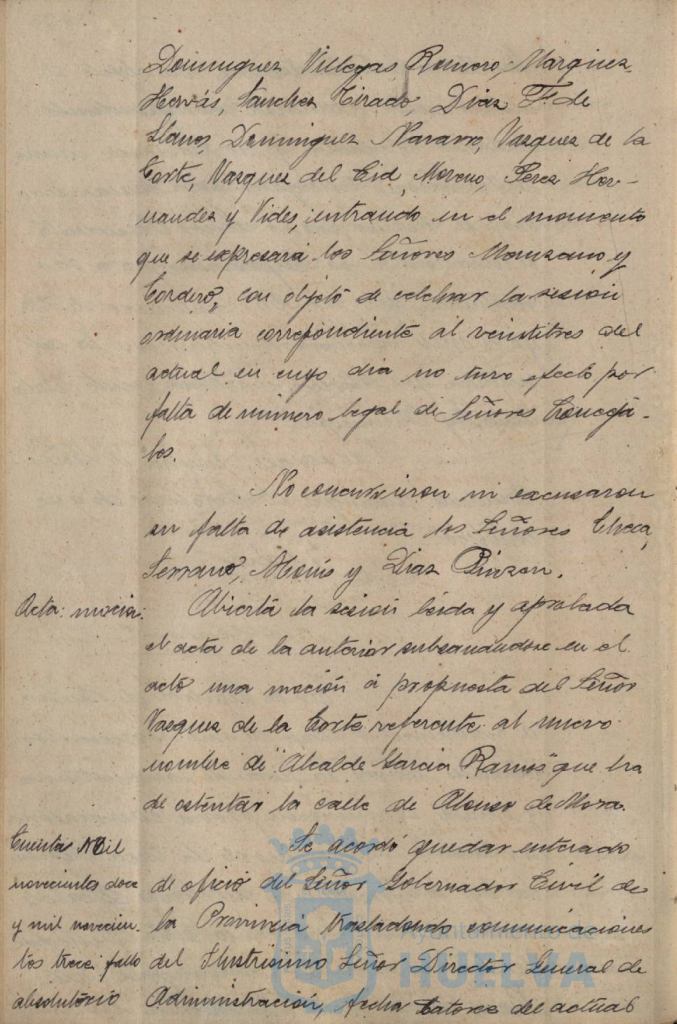 Dominguez Villegas Romero, Marquez
Hervás, Sanchez Tirado, Diaz F. de
Llanos, Dominguez Navarro, Vazquez de la
Corte, Vazquez del Cid, Moreno, Perez Her-
nandez y Vides, entrando en el momento
que se expresará los Señores Manzano y
Cordero, con objeto de celebrar la sesión
ordinaria correpondiente al veintitres del
actual en cuyo dia no tuvo efecto por
falta de número legal de Señores Conceja-
les.
No concurrieron ni excusaron
su falta de asistencia los Señores Checa,
Serrano, Monís y Diaz Pinzon.
Acta: mocion:
Abierta la sesión leida y aprobada
el acta de la anterior subsanandose en el
acto una moción á propuesta del Señor
Vazquez de la Corte referente al nuevo
nombre de "Alcalde Garcia Ramos" que ha
de ostentar la calle de Alonso de Mora.
Cuentas Mil
novecientos doce
y mil novecien-
tos trece fallo
absolutorio
Se acordó quedar enterado
de oficio del Señor Gobernador Civil de
la Provincia trasladando comunicaciones
del Ilustrisimo Señor Director General de
Administración, fecha catorce del actual
HUELVA